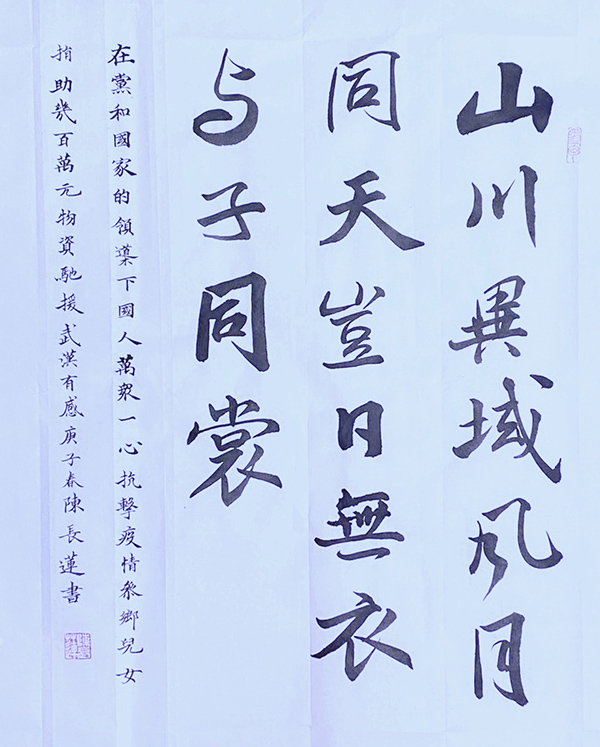 山川異域风月
同天豈曰無衣
与子同裳
在黨和國家的領導下國人萬衆一心抗擊疫情叅鄉兒女
捐助幾百萬元物資馳援武漢有感庚子春陳長蓮書